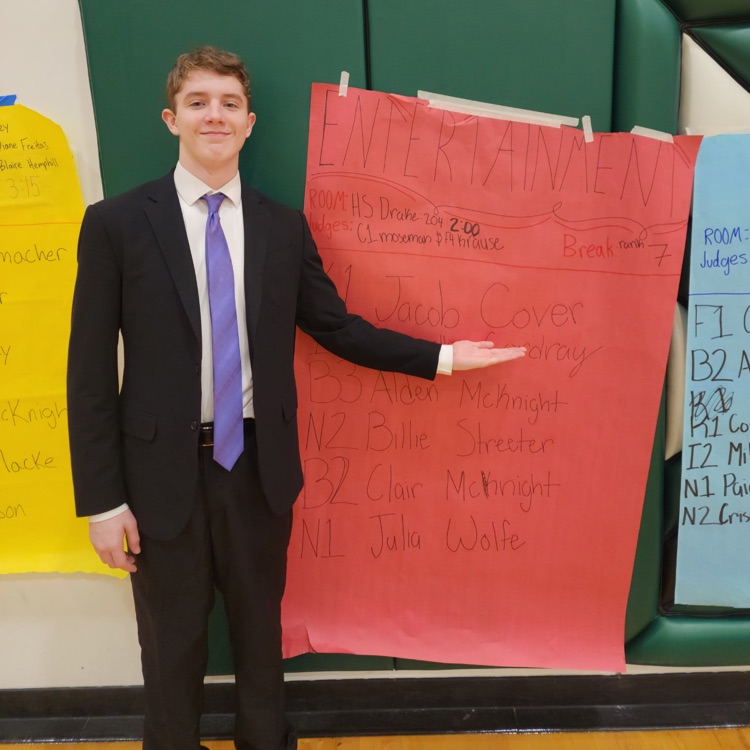 ey
iane Freitas
Blaire Hemphill
3:15
macher
r
y
cKnigh
lacke
son
ENTERTAINMENT
ROOM: HS Drake 204 2:00
Judges: C1 moseman F4 Krause
Break rank 7
1 Jacob Cover
dray
B3 Alden McKnight
N2 Billie Streeter
B2 Clair McKnight
N1 Julia Wolfe
ROOM:
Judges
F1 C
B2 A
K1 Co
I2 Mi
N1 Pai
N2 Cris